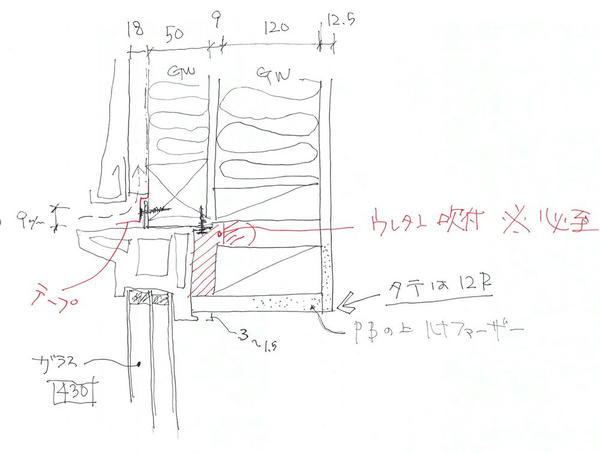 18 50 9 120 12.5
GW GW
9m/m
ウレタン吹付 ※必至
テープ
タテは12R
PBの上ルナファーザー
3~1.5
ガラス
430